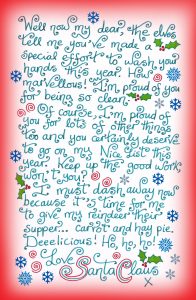 Well now my dear, the elves
tell me you've made a
special effort to wash your
hands this year. How
marvellous! I'm proud of you
for being so clean.
Of course, I'm proud of
you for lots of other things
too and you certainly deserve
to go on my Nice List this
year. Keep up the good work,
won't you?
I must dash away now
because it's time for me
to give my reindeer their
supper... carrot and hay pie.
Deeelicious! Ho, ho, ho!
Love
Santa Claus